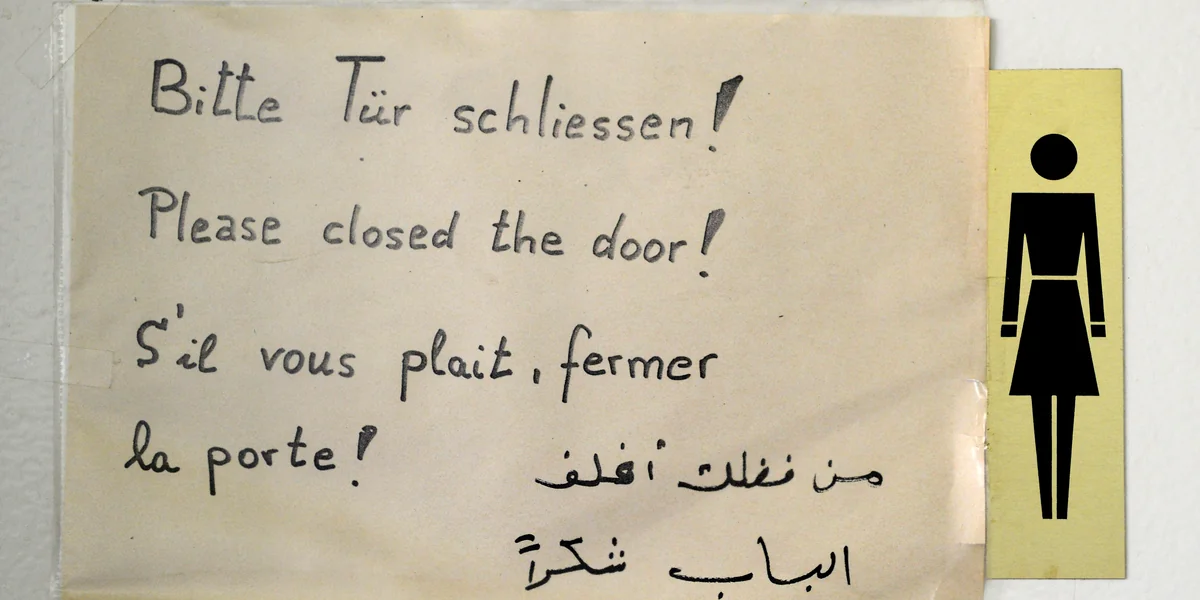 Bitte Tür schliessen!
Please closed the door!
S'il vous plait, fermer
la porte!
من فضلك أغلق
الباب شكراً